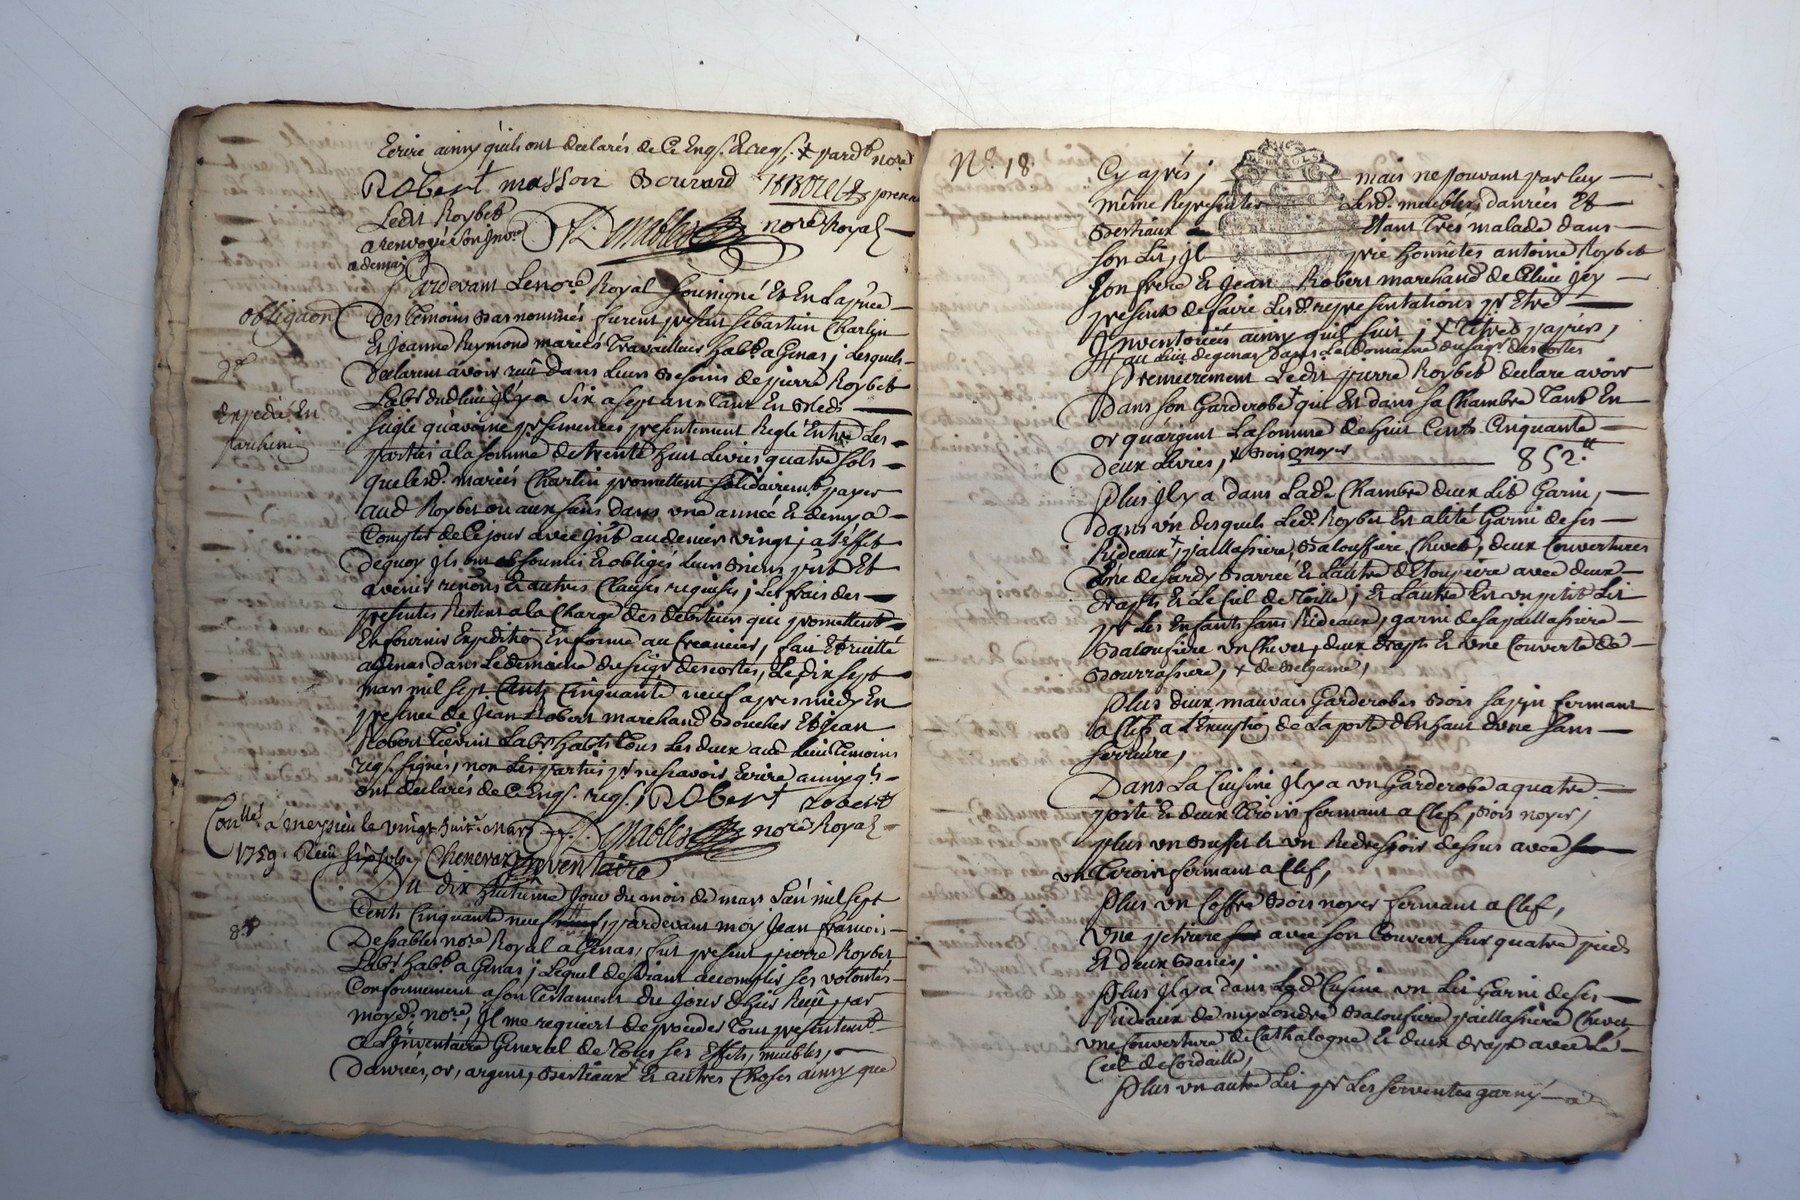 Ecrire ainsy quils ont declarés de Ce Enqs. & reqs. pard.t nore
Robert masson Bourard
Ledit Roybet nore Royal
a renvoyé son Jnv.re
a demain
Pardevant Le nore Royal soussigné Et En La pnce
obligaon
Des temoins Bas nommés furent present sebastien Charlin
Et Jeanne Reymond mariés travailleurs habts a Genas; Lesquels
Declarent avoir reçu dans Leurs Besoins de pierre Roybet
Labr dud lieu il y a six a sept ans tant En Bleds
Expedié En
parchemin
seigle qu'avoine pr semences presentement Reglé Entre Les
parties a la somme de trente huit Livres quatre sols
que lesd. mariés Charlin promettent solidairemt payer
aud Roybet ou aux siens dans une année & demy a
Compter de Ce jour avec Jnt au denier vingt; a L'Effet
dequoy Jls ont soumis Et obligés Leurs Biens pnt Et
avenir renons & autres Clauses requises; Les frais des
presentes Restent a la Charge des debiteurs qui promettent
En fournir Expedition En forme au Creancier, fait Et recitté
a Genas dans Le domaine du sieur descortes, Le dix sept
mars mil sept Cents Cinquante neuf apres midy En
presence de Jean Robert marchand Boucher Et Jean
Robert Labr habts tous Les deux aud Lieu temoins
reqs. signés, non Les parties pr ne sçavoir Ecrire ainsy qls
ont declarés de Ce Enqs. reqs. Robert Robert
Conllé. a Meysieu le vingt huit. Mars nore Royal
1759. Reçu six sols Chenevaz
Jnventaire
Du dix huitieme Jour du mois de mars L'an mil sept
Cents Cinquante neuf, pardevant moy Jean françois
Dessables nore Royal a Genas, fut present pierre Roybet
Labr habt a Genas; Lequel desirant accomplir ses volontés
Conformement a son testament du jour d'hier Reçu par
moyd. nore, Jl me requiert de proceder tout presentemt
a L'Jnventaire General de tous ses Effets, meubles,
Danrées, or, argent, Bestiaux Et autres Choses ainsy que
No. 18
Cy après; mais ne pouvant par luy
même Representer Lesd. meubles, danrées Et
Bestiaux Etant très malade dans
son Lit, Jl prie honnêtes antoine Roybet
son frere Et Jean Robert marchand de Ce lieu Jcy
present de faire Lesd. representations pr Etre
Jnventoriées ainsy quil suit; titres papiers,
au lieu de genas dans le domaine du sieur descortes
Premierement Ledit pierre Roybet declare avoir
Dans son Garderobe qui Est dans sa Chambre tant En
or qu'argent La somme de huit Cents Cinquante
Deux Livres, Bois noyer 852.
Plus Jl y a dans Lade Chambre deux Lits Garni,
dans un desquels Led. Roybet Est alité Garni de ses
Rideaux, paillassiere, Baloussiere Chevet, deux Couvertures
Une de Barrée Et L'autre avec deux
draps Et Le Ciel de toille, Et L'autre Est un petit Lit
pr Les Enfants sans Rideaux, garni de sa paillassiere
Baloussiere un Chevet, deux draps Et une Couverte de
Bourrassiere,
Plus deux mauvais Garderobes Bois sapin fermant
a Clef, a L'Exception de La porte d'En haut d'une sans
serrure,
Dans La Cuisine Jl y a un Garderobe a quatre
porte Et deux tiroirs fermant a Clef, Bois noyer,
plus un Buffet Et un Redressoir dessus avec
un tiroir fermant a Clef,
Plus un Coffre Bois noyer fermant a Clef,
Une petriere avec son Couvert sur quatre pieds
Et deux Barres,
Plus Jl y a dans Lade Cuisine un Lit Garni de ses
Rideaux de Baloussiere paillassiere Chevet,
une Couverture de Cathalogne Et deux draps avec Le
Ciel de Cordaille,
Plus un autre Lit pr Les servantes garny